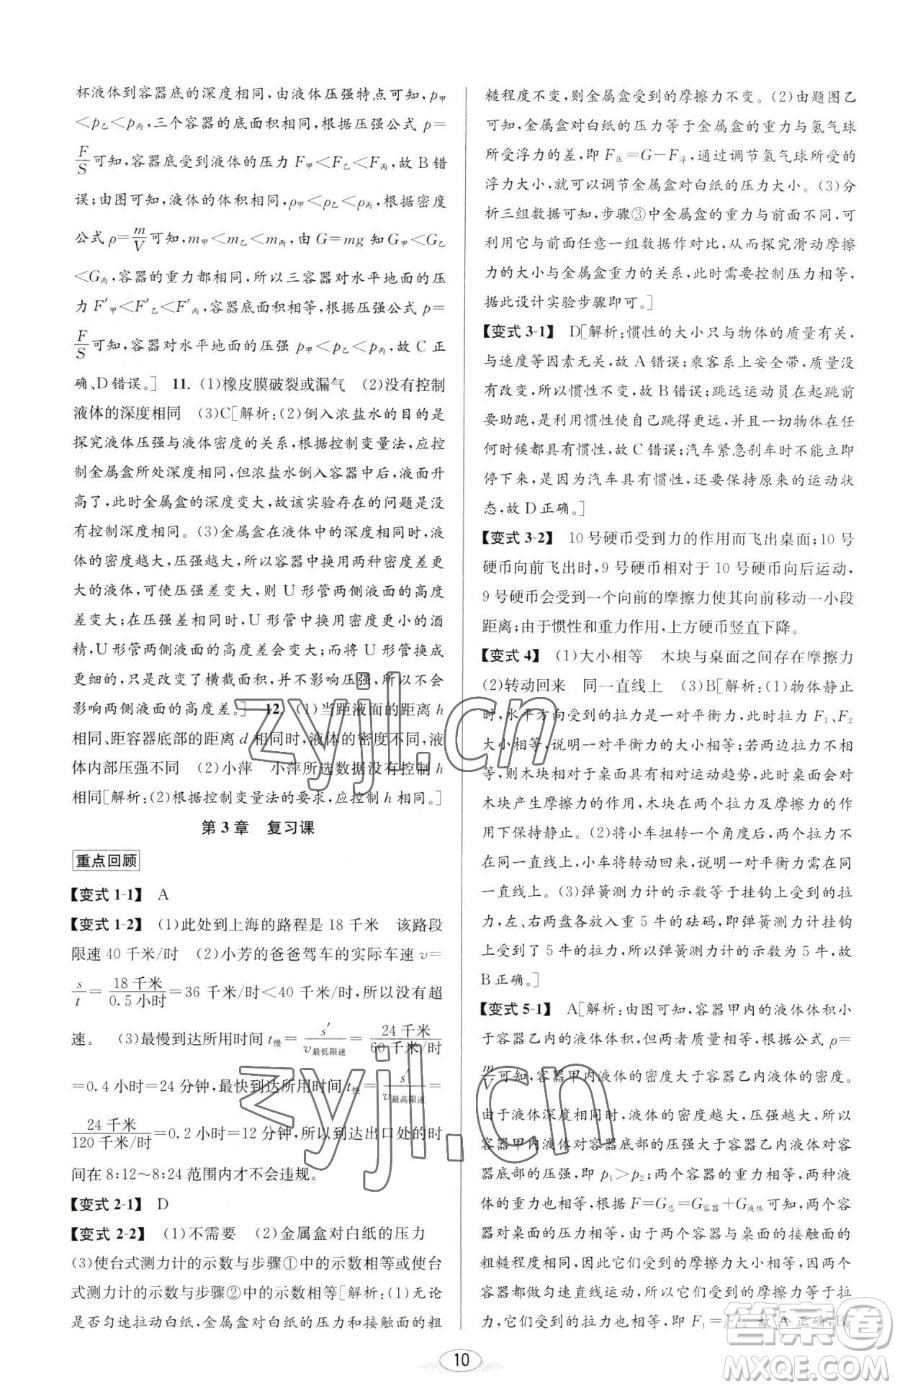 杯液体到容器底的深度相同，由液体压强特点可知，p甲
＜p乙＜p丙，三个容器的底面积相同，根据压强公式 p＝
F/S 可知，容器底受到液体的压力 F甲＜F乙＜F丙，故 B 错
误；由图可知，液体的体积相同，ρ甲＜ρ乙＜ρ丙，根据密度
公式 ρ＝m/V 可知，m甲＜m乙＜m丙，由 G＝mg 知 G甲＜G乙
＜G丙，容器的重力都相同，所以三容器对水平地面的压
力 F′甲＜F′乙＜F′丙，容器底面积相等，根据压强公式 p＝
F/S 可知，容器对水平地面的压强 p甲＜p乙＜p丙，故 C 正
确、D 错误。］ 11. (1)橡皮膜破裂或漏气 (2)没有控制
液体的深度相同 (3)C［解析：(2)倒入浓盐水的目的是
探究液体压强与液体密度的关系，根据控制变量法，应控
制金属盒所处深度相同，但浓盐水倒入容器中，液面会升
高了，此时金属盒的深度变大，故该实验存在的问题是没
有控制深度相同。(3)金属盒在液体中的深度相同，液体
的密度越大，压强越大，换用两种密度差更
大的液体，则压强差变大，所以 U 形管两侧液面的高度
差变大；在压强差相等时，U 形管中换用密度更小的酒
精，U 形管两侧液面的高度差会变大；U 形管换成更细
的，只是改变了液柱的粗细，没有改变压强，所以不会
影响两侧液面的高度差。］ 12. (1)当距液面的深度 h
相同、距容器底部的距离 d 相同时，液体的密度不同，液
体内部压强不同 (2)小萍 小萍所选数据没有控制 h
相同［解析：(2)根据控制变量法的要求，应控制 h 相同。］
第 3 章 复习课
重点回顾
【变式 1-1】 A
【变式 1-2】 (1)此处到上海的路程是 18 千米 该路段
限速 40 千米/时 (2)小芳的爸爸驾车的实际车速 v＝
s/t＝18 千米/0.5 小时＝36 千米/时＜40 千米/时，所以没有超
速。 (3)最慢到达所用时间 t慢＝s′/v最低限速＝24 千米/60 千米/时
＝0.4 小时＝24 分钟，最快到达所用时间 t快＝s′/v最高限速＝
24 千米/120 千米/时＝0.2 小时＝12 分钟，所以到达出口处的时
间在 8:12～8:24 范围内才不会违规。
【变式 2-1】 D
【变式 2-2】 (1)不需要 (2)金属盒对白纸的压力
(3)使台式测力计的示数与步骤①中的示数相等或使台
式测力计的示数与步骤②中的示数相等［解析：(1)无论
是否匀速拉动白纸，金属盒对白纸的压力和接触面的粗
糙程度不变，则金属盒受到的摩擦力不变。(2)由题图乙
可知，金属盒对白纸的压力等于金属盒的重力与氢气球
所受浮力的差，即 F压＝G－F浮，通过调节氢气球所受的
浮力大小，就可以调节金属盒对白纸的压力大小。(3)分
析三组数据可知，步骤③中金属盒的重力与前面不同，可
利用它与前面任意一组数据作对比，从而探究滑动摩擦
力的大小与金属盒的重力的关系，此时需要控制压力相等，
据此设计实验步骤即可。］
【变式 3-1】 D［解析：惯性的大小只与物体的质量有关，
与速度等因素无关，故 A 错误；乘客系上安全带，质量没
有改变，所以惯性不变，故 B 错误；跳远运动员在起跳前
要助跑，是利用惯性使自己跳得更远，并且一切物体在任
何时候都具有惯性，故 C 错误；汽车紧急刹车时不能立即
停下来，是因为汽车具有惯性，还要保持原来的运动状
态，故 D 正确。］
【变式 3-2】 10 号硬币受到力的作用而飞出桌面；10 号
硬币向前飞出时，9 号硬币相对于 10 号硬币向后运动，
9 号硬币会受到一个向前的摩擦力使其向前移动一小段
距离；由于惯性和重力作用，上方硬币竖直下降。
【变式 4】 (1)大小相等 木块与桌面之间存在摩擦力
(2)转动回来 同一直线上 (3)B［解析：(1)物体静止
时，水平方向受到的拉力是一对平衡力，此时拉力 F₁、F₂
大小相等，所以二力平衡的条件之一是大小相等；若两边拉力不
等，则木块相对于桌面具有相对运动趋势，桌面对
木块产生摩擦力的作用，木块在拉力和摩擦力的作用下
保持静止。(2)将小车扭转一个角度，小车所受的拉力不
在同一直线上，小车将会转动回来，说明一对平衡力应在
同一直线上。(3)弹簧测力计的示数等于挂钩上受到的拉
力，左、右两盘各放入重 5 牛的砝码，即弹簧测力计挂钩
上受到 5 牛的拉力，所以弹簧测力计的示数为 5 牛，故
B 正确。］
【变式 5-1】 A［解析：由图可知，容器甲内的液体体积小
于容器乙内的液体体积，两容器内液体质量相等，根据 ρ＝
m/V 可知，容器甲内液体的密度大于容器乙内液体的密度。
由于液体深度相同时，液体的密度越大，压强越大，所以
容器甲内液体对容器底部的压强大于容器乙内液体对容
器底部的压强，即 p₁＞p₂；两个容器的重力相等，两种液
体的重力也相等，根据 F＝G总＝G容器＋G液体可知，两个容
器对桌面的压力相等，由于两个容器与桌面的接触面的
粗糙程度相同，则两容器受到的摩擦力大小相等，由于两
个容器都做匀速直线运动，水平方向上的拉力等于摩擦
力，所以它们受到的拉力也相等，即 F₁＝F₂。故 A 正确。］
10
zyjl.cn
zyjl.cn
答案圈
MXQE.COM